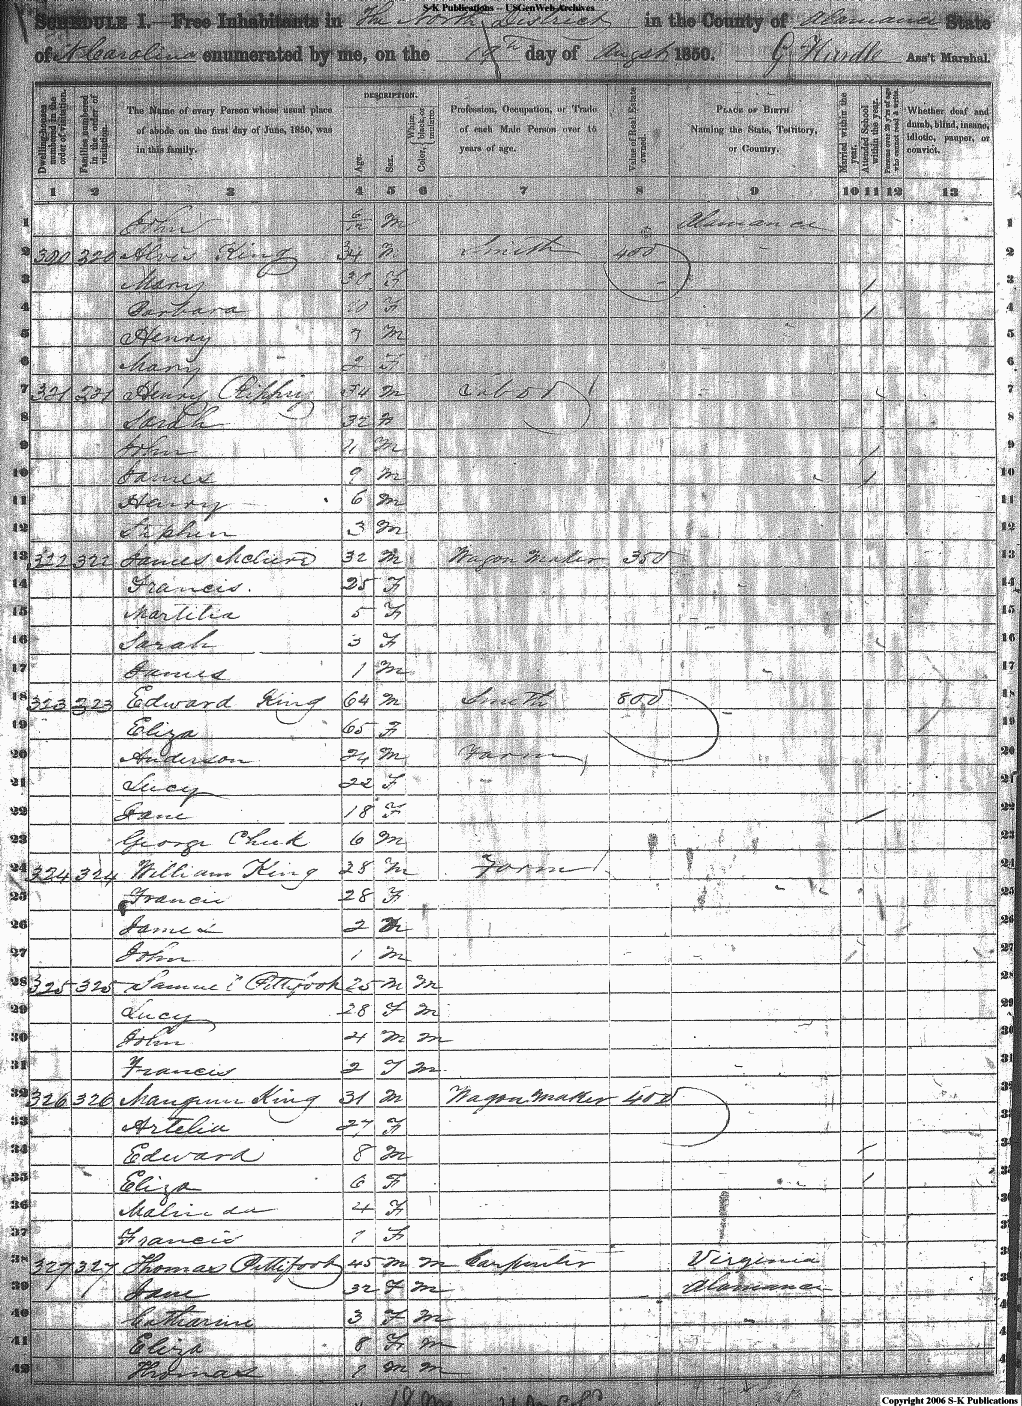 S-K Publications -- USGenWeb Archives
SCHEDULE I.—Free Inhabitants in The North District in the County of Alamance State
of N Carolina enumerated by me, on the 19th day of August 1850. G Hurdle Ass't Marshal.
Dwelling-houses numbered in the order of visitation.
Families numbered in the order of visitation.
The Name of every Person whose usual place of abode on the first day of June, 1850, was in this family.
DESCRIPTION.
Age.
Sex.
Color, White, black, or mulatto.
Profession, Occupation, or Trade of each Male Person over 15 years of age.
Value of Real Estate owned.
PLACE OF BIRTH.
Naming the State, Territory, or Country.
Married within the year.
Attended School within the year.
Persons over 20 y'rs of age who cannot read & write.
Whether deaf and dumb, blind, insane, idiotic, pauper, or convict.
1 2 3 4 5 6 7 8 9 10 11 12 13
1 John 6/12 M Alamance 1
2 320 320 Alvis King 34 M Smith 400 2
3 Mary 30 F / 3
4 Barbara 10 F / 4
5 Henry 7 M 5
6 Mary 2 F 6
7 321 321 Henry 34 M Labor 7
8 Sarah 32 F 8
9 John 11 M / 9
10 James 9 M / 10
11 Henry 6 M 11
12 Stephen 3 M 12
13 322 322 James 32 M Wagon Maker 350 13
14 Francis. 25 F 14
15 Martilia 5 F 15
16 Sarah 3 F 16
17 James 1 M 17
18 323 323 Edward King 64 M Smith 800 18
19 Eliza 65 F 19
20 Anderson 24 M Farm 20
21 Lucy 22 F 21
22 Jane 18 F / 22
23 George Cheek 6 M 23
24 324 324 William King 28 M Farm 24
25 Francis 28 F 25
26 James 2 M 26
27 John 1 M 27
28 325 325 Samuel Pettifook 25 M M 28
29 Lucy 28 F M 29
30 John 4 M M 30
31 Francis 2 F M 31
32 326 326 Mangrum King 31 M Wagon Maker 400 32
33 Artelia 27 F 33
34 Edward 8 M / 34
35 Eliza 6 F / 35
36 Malinda 4 F 36
37 Francis 1 F 37
38 327 327 Thomas Pettifook 45 M M Carpenter Virginia
39 Jane 32 F M Alamance
40 Catharine 3 F M
41 Eliza 8 F M
42 Thomas 1 M M
Copyright 2006 S-K Publications